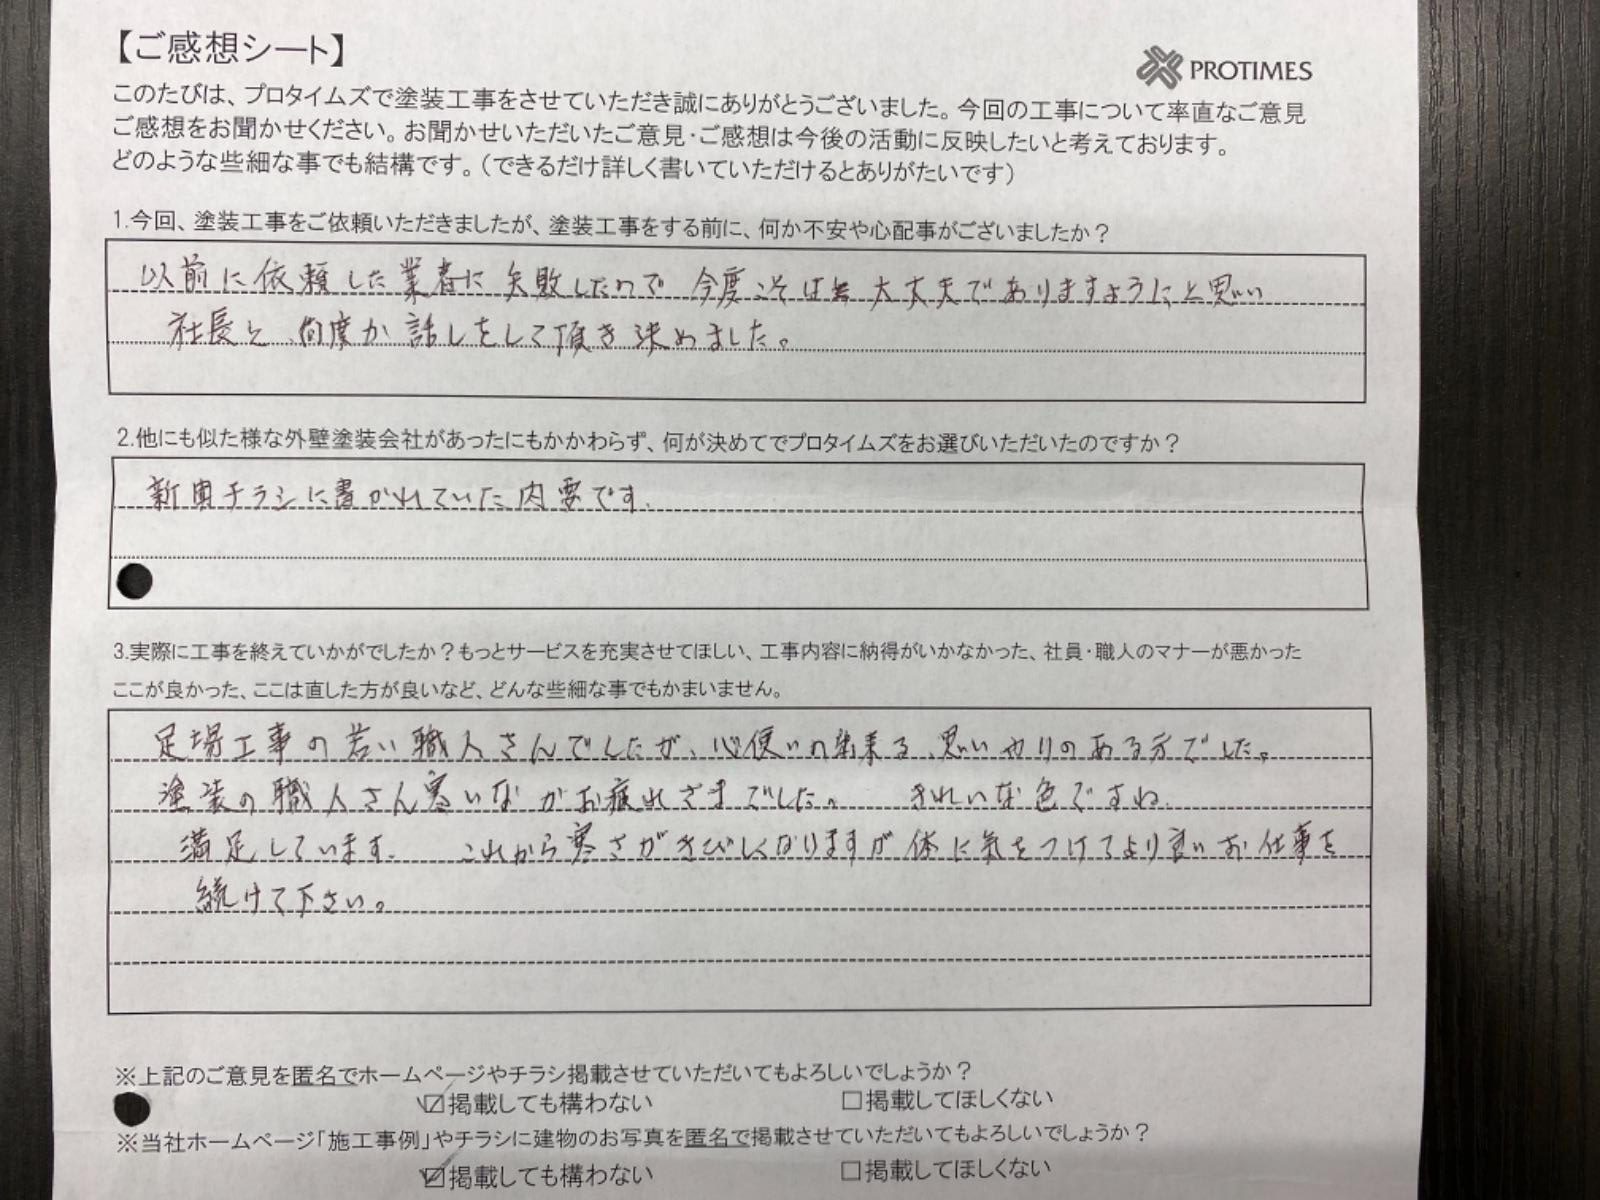 【ご感想シート】
PROTIMES
このたびは、プロタイムズで塗装工事をさせていただき誠にありがとうございました。今回の工事について率直なご意見
ご感想をお聞かせください。お聞かせいただいたご意見・ご感想は今後の活動に反映したいと考えております。
どのような些細な事でも結構です。(できるだけ詳しく書いていただけるとありがたいです)
1.今回、塗装工事をご依頼いただきましたが、塗装工事をする前に、何か不安や心配事がございましたか?
以前に依頼した業者に失敗したので今度こそは大丈夫でありますようにと思い
社長と、何度か話しをして頂き決めました。
2.他にも似た様な外壁塗装会社があったにもかかわらず、何が決めてでプロタイムズをお選びいただいたのですか?
新聞チラシに書かれていた内容です.
3.実際に工事を終えていかがでしたか?もっとサービスを充実させてほしい、工事内容に納得がいかなかった、社員・職人のマナーが悪かった
ここが良かった、ここは直した方が良いなど、どんな些細な事でもかまいません。
足場工事の若い職人さんでしたが、心使いの出来る、思いやりのある方でした。
塗装の職人さん寒いなかお疲れさまでした。 きれいな色ですね.
満足しています. これから寒さがきびしくなりますが体に気をつけてより良いお仕事を
続けて下さい。
※上記のご意見を匿名でホームページやチラシ掲載させていただいてもよろしいでしょうか?
☑掲載しても構わない □掲載してほしくない
※当社ホームページ「施工事例」やチラシに建物のお写真を匿名で掲載させていただいてもよろしいでしょうか?
☑掲載しても構わない □掲載してほしくない